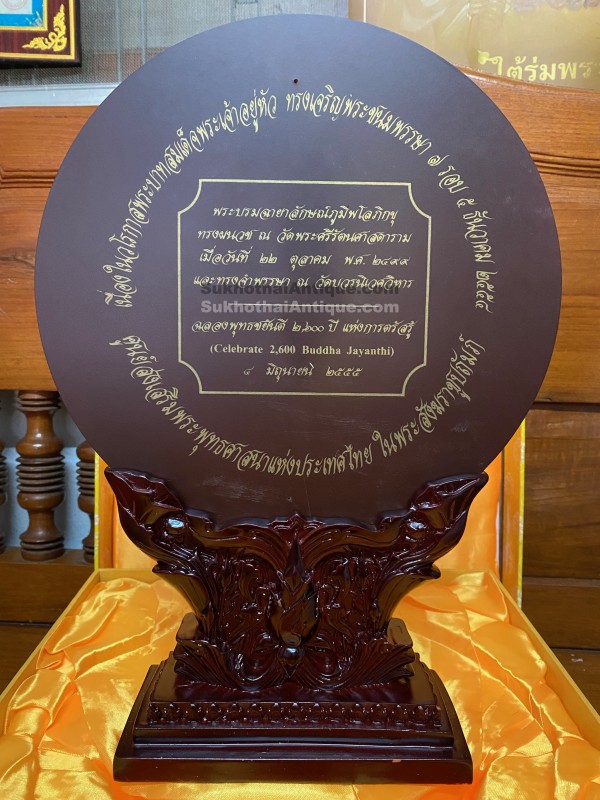 ใต้ร่มพระ
เนื่องในวโรกาสพระบาทสมเด็จพระเจ้าอยู่หัว ทรงเจริญพระชนมพรรษา ๗ รอบ ๕ ธันวาคม ๒๕๕๔
พระบรมฉายาลักษณ์ภูมิพโลภิกขุ
ทรงผนวช ณ วัดพระศรีรัตนศาสดาราม
เมื่อวันที่ ๒๒ ตุลาคม พ.ศ. ๒๔๙๙
และทรงจำพรรษา ณ วัดบวรนิเวศวิหาร
SukhothaiAntique.com
SukhothaiAntique.com
ฉลองพุทธชยันตี ๒,๖๐๐ ปี แห่งการตรัสรู้
(Celebrate 2,600 Buddha Jayanthi)
๔ มิถุนายน ๒๕๕๕
ศูนย์ส่งเสริมพระพุทธศาสนาแห่งประเทศไทย ในพระสังฆราชูปถัมภ์